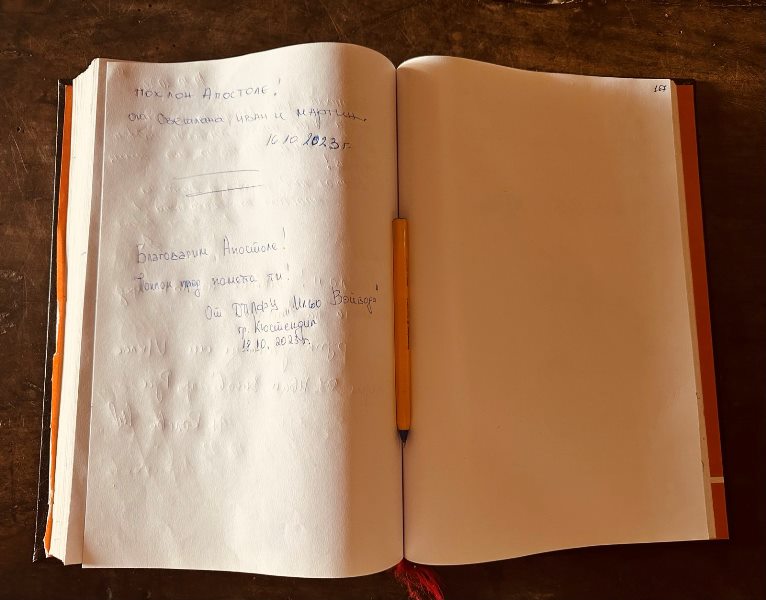 Поклон Апостоле!
от Светлана, Иван и Мартин.
16.10.2023 г.
Благодарим, Апостоле!
Поклон пред паметта ти!
От "Ильо Войвода"
гр. Кюстендил
19.10.2023 г.
167